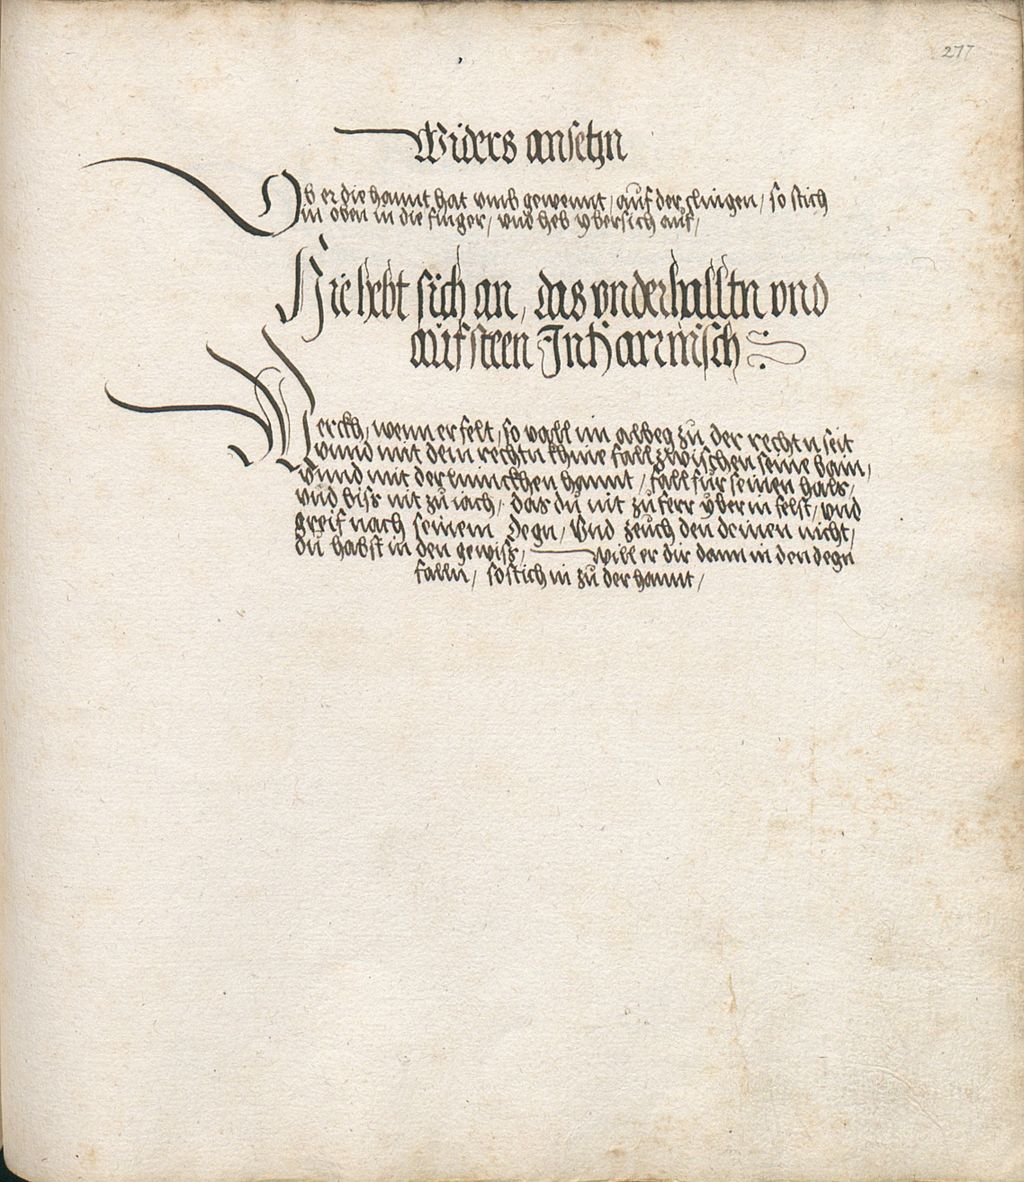 277
Widers ansetzn
Ob er die hannt hat vmb gewennt / auf der clingen / so stich
in oben in die finger / vnd heb ybersich auf /
Hie hebt sich an, das vnderhalltn vnd
aufsteen Jn Harnnisch
Merckh, wenn er felt, so vall im albeg zu der rechtn seit
vnnd mit dem rechtn khnie fall zwischen seine bain,
Vnnd mit der linnckhen hannt / fall für seinen hals,
vnd biss nit zu iach, das du nit zu ferr yber in felst, vnd
greif nach seinem degn / Vnd zeuch den deinen nicht,
du habst in den gewiss, will er dir dann in den degn
falln / so stich in zu der hannt /